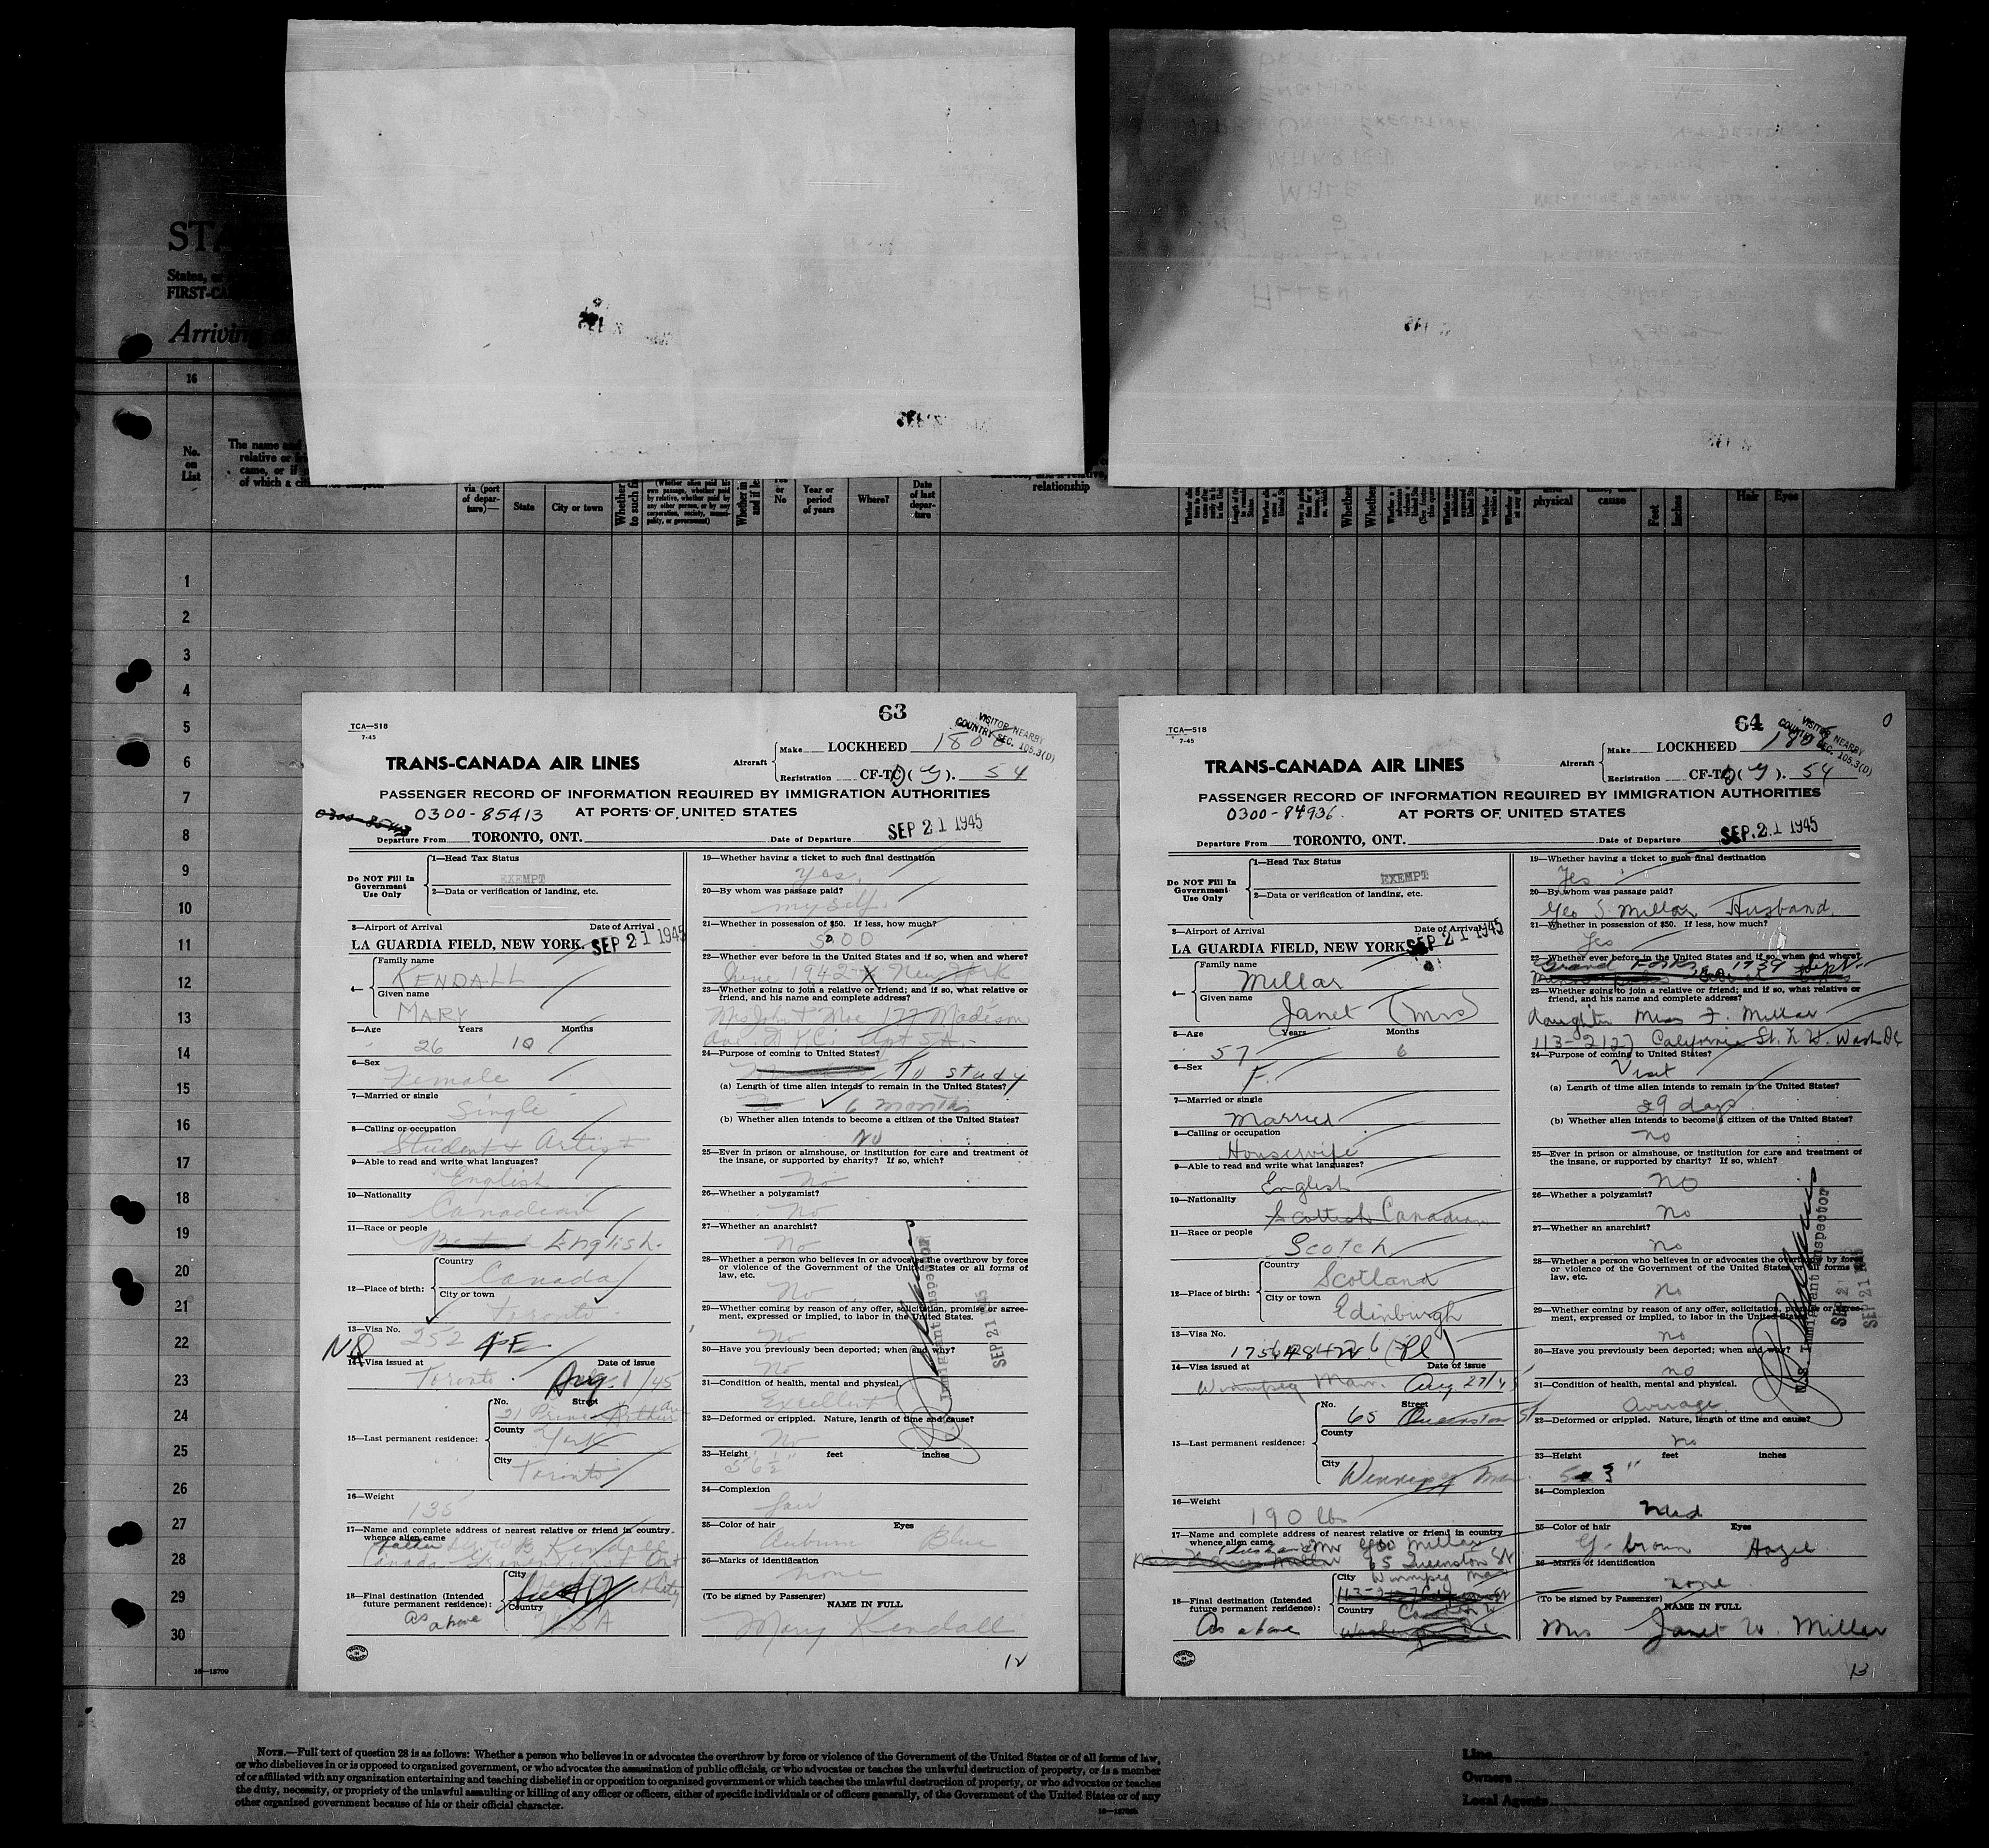 16
No. on List
State
City or town
Year or period of years
Where?
Date of last departure
relationship
physical
cause
Feet
Inches
Hair
Eyes
1
2
3
4
5
6
7
8
9
10
11
12
13
14
15
16
17
18
19
20
21
22
23
24
25
26
27
28
29
30
16—18709
TCA—518
7-45
63
VISITOR NEARBY
COUNTRY SEC. 105.3(D)
TRANS-CANADA AIR LINES
Aircraft
Make LOCKHEED
Registration CF-TC (G). 54
PASSENGER RECORD OF INFORMATION REQUIRED BY IMMIGRATION AUTHORITIES
AT PORTS OF UNITED STATES
0300-85413
Departure From TORONTO, ONT. Date of Departure SEP 21 1945
Do NOT Fill In Government Use Only
1—Head Tax Status
EXEMPT
2—Data or verification of landing, etc.
3—Airport of Arrival Date of Arrival
LA GUARDIA FIELD, NEW YORK. SEP 21 1945
4— Family name
KENDALL
Given name
MARY
5—Age Years Months
26 10
6—Sex
Female
7—Married or single
Single
8—Calling or occupation
Student & Artist
9—Able to read and write what languages?
English
10—Nationality
Canadian
11—Race or people
English.
12—Place of birth:
Country
Canada
City or town
Toronto
13—Visa No.
252
14—Visa issued at Date of issue
Toronto. Aug. 1/45
15—Last permanent residence:
No. Street
21 Prince Arthur Ave
County
York
City
Toronto
16—Weight
135
17—Name and complete address of nearest relative or friend in country whence alien came
father B Kendall
Canada Gravenhurst Ont
18—Final destination (Intended future permanent residence):
City
Country
As above
USA
19—Whether having a ticket to such final destination
Yes.
20—By whom was passage paid?
myself.
21—Whether in possession of $50. If less, how much?
22—Whether ever before in the United States and if so, when and where?
June 1942 New York
23—Whether going to join a relative or friend; and if so, what relative or friend, and his name and complete address?
Mrs John Moe 177 Madison
ave. N.Y.C. Apt 5A.
24—Purpose of coming to United States?
To study
(a) Length of time alien intends to remain in the United States?
6 months
(b) Whether alien intends to become a citizen of the United States?
No
25—Ever in prison or almshouse, or institution for care and treatment of the insane, or supported by charity? If so, which?
No
26—Whether a polygamist?
No
27—Whether an anarchist?
No
28—Whether a person who believes in or advocates the overthrow by force or violence of the Government of the United States or all forms of law, etc.
No
29—Whether coming by reason of any offer, solicitation, promise or agreement, expressed or implied, to labor in the United States.
No
30—Have you previously been deported; when and why?
No
31—Condition of health, mental and physical.
Excellent
32—Deformed or crippled. Nature, length of time and cause?
No
33—Height feet inches
5' 6½"
34—Complexion
fair
35—Color of hair Eyes
Auburn Blue
36—Marks of identification
none
(To be signed by Passenger)
NAME IN FULL
Mary Kendall
Immigrant Inspector
SEP 21 1945
12
TCA—518
7-45
64
0
VISITOR NEARBY
COUNTRY SEC. 105.3(D)
TRANS-CANADA AIR LINES
Aircraft
Make LOCKHEED
Registration CF-TC (G). 54
PASSENGER RECORD OF INFORMATION REQUIRED BY IMMIGRATION AUTHORITIES
AT PORTS OF UNITED STATES
0300-84936.
Departure From TORONTO, ONT. Date of Departure SEP. 21 1945
Do NOT Fill In Government Use Only
1—Head Tax Status
EXEMPT
2—Data or verification of landing, etc.
3—Airport of Arrival Date of Arrival
LA GUARDIA FIELD, NEW YORK SEP 21 1945
4— Family name
Millar
Given name
Janet (Mrs)
5—Age Years Months
57 6
6—Sex
F.
7—Married or single
Married
8—Calling or occupation
Housewife
9—Able to read and write what languages?
English
10—Nationality
Scottish Canadian
11—Race or people
Scotch
12—Place of birth:
Country
Scotland
City or town
Edinburgh
13—Visa No.
14—Visa issued at Date of issue
Winnipeg Man. Aug 27/45
15—Last permanent residence:
No. Street
65 Queenston St
County
City
Winnipeg Man
16—Weight
190 lbs
17—Name and complete address of nearest relative or friend in country whence alien came
husband Mr Geo Millar
65 Queenston St
Winnipeg Man
18—Final destination (Intended future permanent residence):
City
Country
As above
19—Whether having a ticket to such final destination
Yes
20—By whom was passage paid?
Geo S. Millar Husband.
21—Whether in possession of $50. If less, how much?
Yes
22—Whether ever before in the United States and if so, when and where?
Grand Forks, 1939 Sept.
23—Whether going to join a relative or friend; and if so, what relative or friend, and his name and complete address?
daughter Miss F. Millar
113-2127 California St. N.W. Wash DC
24—Purpose of coming to United States?
Visit
(a) Length of time alien intends to remain in the United States?
29 days
(b) Whether alien intends to become a citizen of the United States?
no
25—Ever in prison or almshouse, or institution for care and treatment of the insane, or supported by charity? If so, which?
NO
26—Whether a polygamist?
No
27—Whether an anarchist?
no
28—Whether a person who believes in or advocates the overthrow by force or violence of the Government of the United States or all forms of law, etc.
no
29—Whether coming by reason of any offer, solicitation, promise or agreement, expressed or implied, to labor in the United States.
no
30—Have you previously been deported; when and why?
no
31—Condition of health, mental and physical.
Average.
32—Deformed or crippled. Nature, length of time and cause?
no
33—Height feet inches
5 3"
34—Complexion
Med
35—Color of hair Eyes
G. brown Hazel
36—Marks of identification
none
(To be signed by Passenger)
NAME IN FULL
Mrs Janet W. Millar
U.S. Immigrant Inspector
SEP 21 1945
13
NOTE.—Full text of question 28 is as follows: Whether a person who believes in or advocates the overthrow by force or violence of the Government of the United States or of all forms of law,
or who disbelieves in or is opposed to organized government, or who advocates the assassination of public officials, or who advocates or teaches the unlawful destruction of property, or is a member
of or affiliated with any organization entertaining and teaching disbelief in or opposition to organized government or which teaches the unlawful destruction of property, or who advocates or teaches
the duty, necessity, or propriety of the unlawful assaulting or killing of any officer or officers, either of specific individuals or of officers generally, of the Government of the United States or of any
other organized government because of his or their official character.
Line
Owners
Local Agents